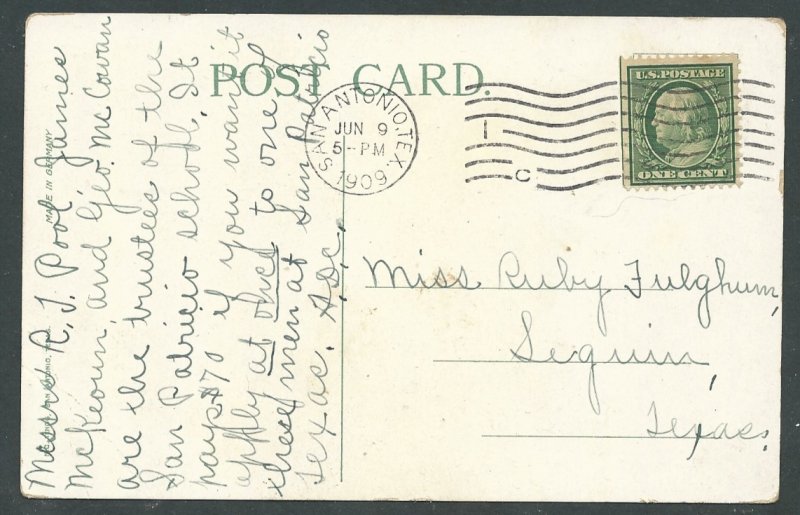 POST CARD.
SAN ANTONIO, TEX.
JUN 9
5-PM
1909
1
C
U.S. POSTAGE
ONE CENT
MADE IN GERMANY
Messrs R. J. Pool, James
McKeown, and Geo. McCowan
are the trustees of the
San Patricio school. It
pays $70 if you want it
apply at once to one of
these men at San Patricio
Texas.
Miss Ruby Fulghum,
Seguin,
Texas.